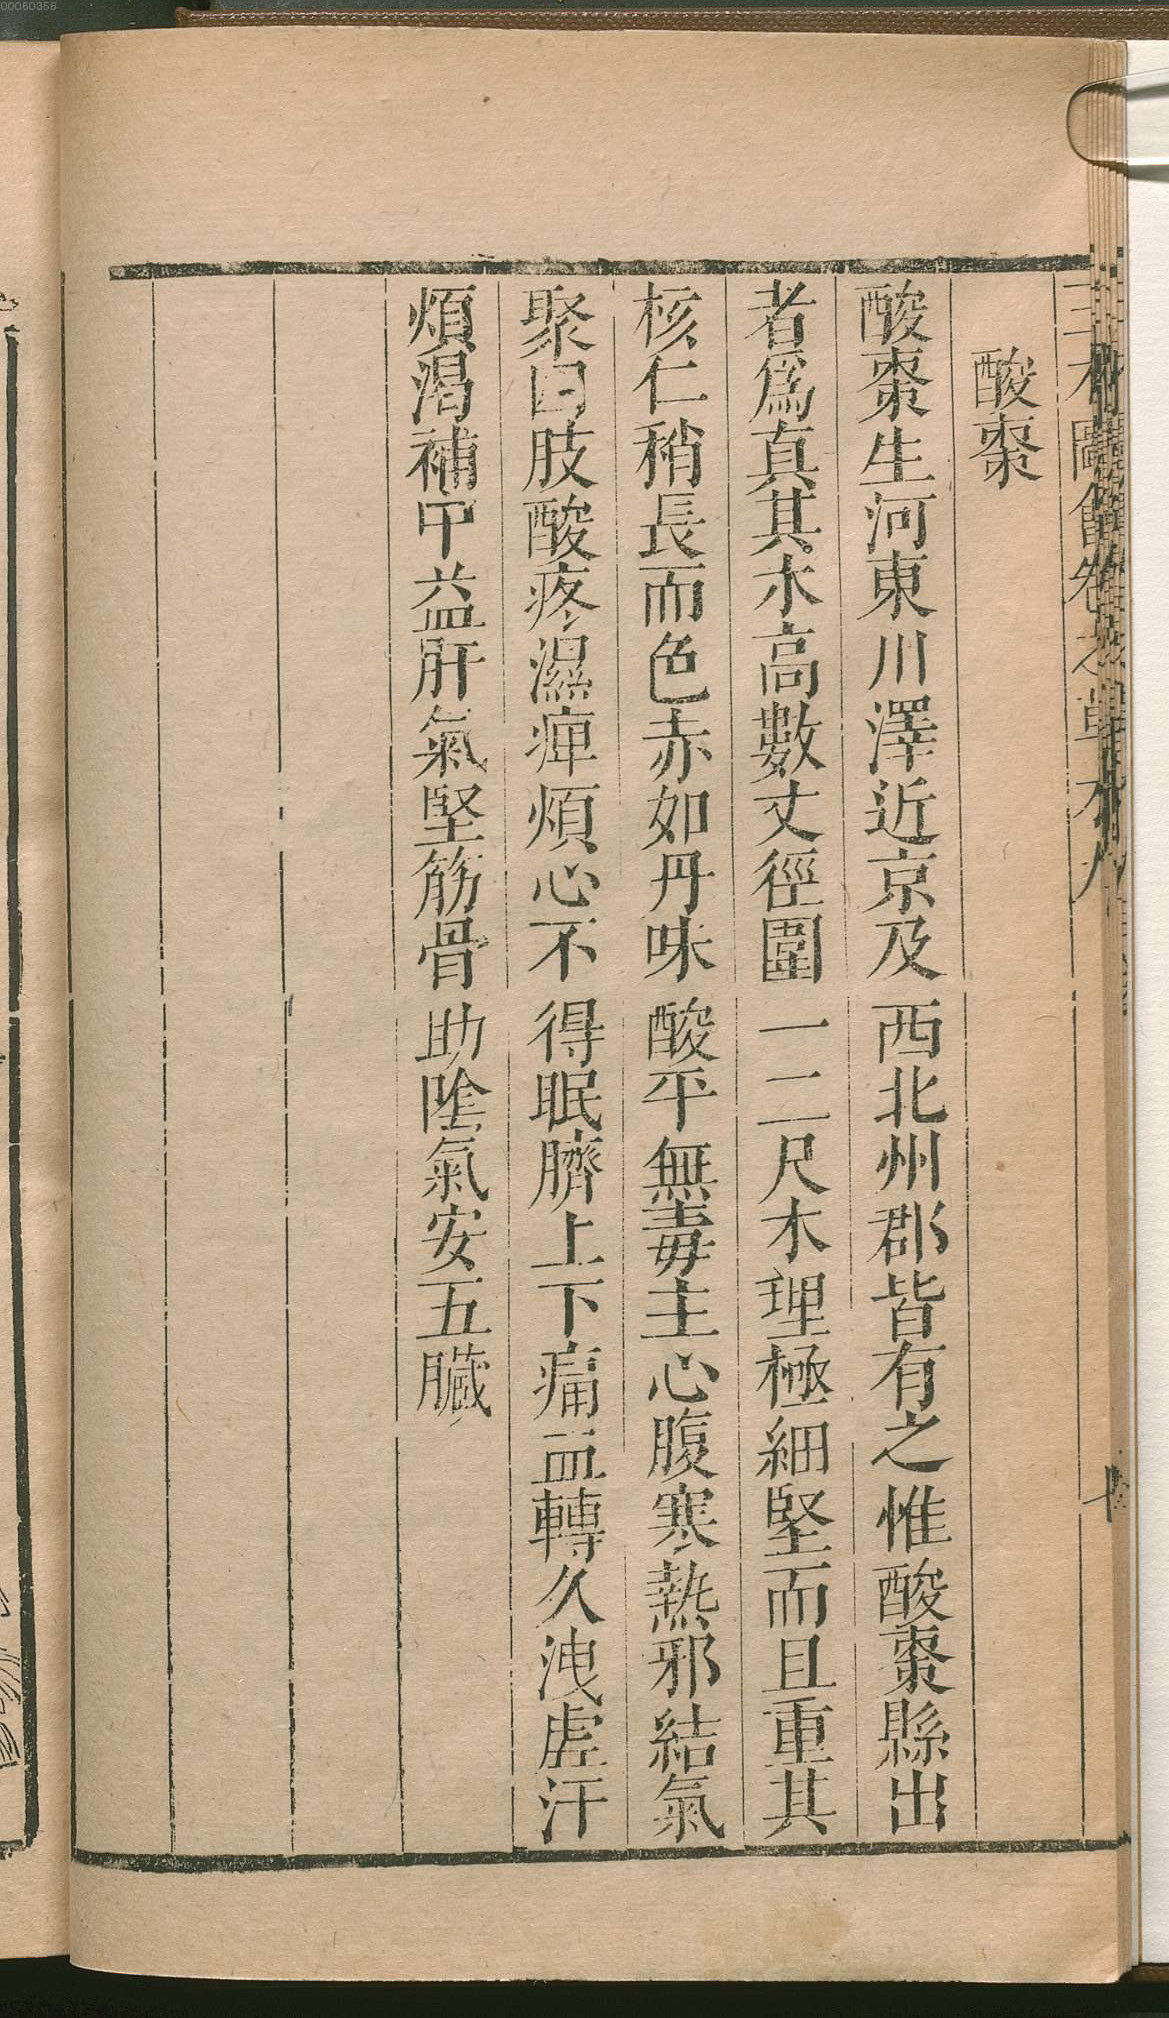 酸棗
酸棗生河東川澤近京及西北州郡皆有之惟酸棗縣出
者爲真其木高數丈徑圍一二尺木理極細堅而且重其
核仁稍長而色赤如丹味酸平無毒主心腹寒熱邪結氣
聚四肢酸疼濕痺煩心不得眠臍上下痛血轉久洩虛汗
煩渴補中益肝氣堅筋骨助陰氣安五臟
00060356